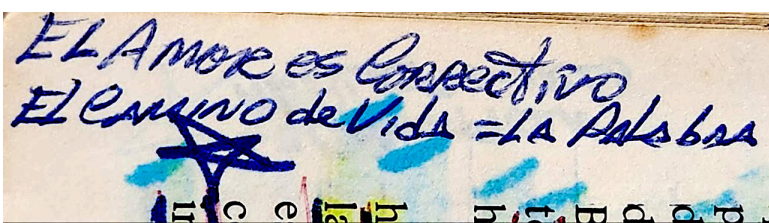 EL AMOR es CORRECTIVO
El CAMINO de VidA = LA PALAbRA